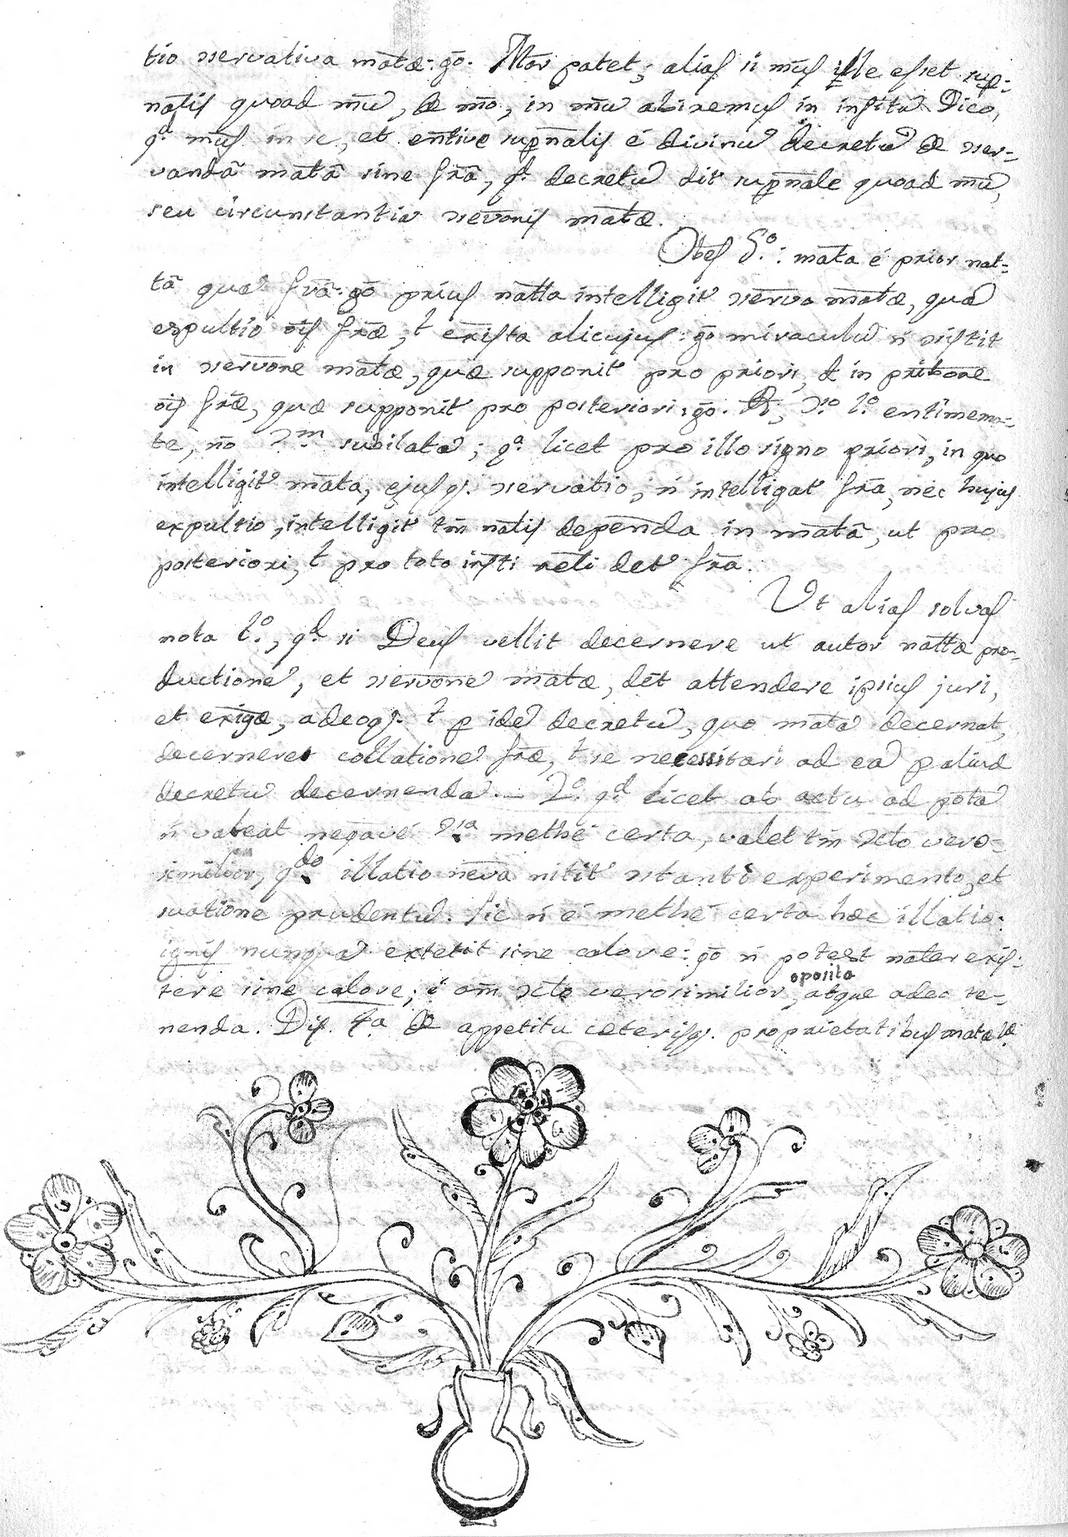 tio servativa matæ: gō. Mār patet; alias si mūs ille esset sup-
nālis quoad mū, de mō, in mū abiremus in infita. Dico,
qͣ mūs in se, et entive supnālis ē divinū decretū de ser-
vandā matā sine frā, qͭ decretū dit supnāle quoad mū,
seu circunstantia servōnis matæ.
Objes 5º: mata ē prior nat-
tā quā frā: gō prius natta intelligitʳ serva matæ, quā
expultio ois fræ, ł exista alicujus: gō miraculū ñ sistit
in servōne matæ, quæ supponitʳ pro priori, & in pribone
ois fræ, quæ supponitʳ pro posteriori: gō. R; 1º entimema-
te, nō subilata; qͣ licet pro illo signo priori, in quo
intelligitʳ mata, ejusq. servatio, ñ intelligatʳ frā, nec hujus
expultio, intelligitʳ tm̄ nālis dependa in matā, ut pro
posteriori, ł pro toto insti reāli detʳ frā.
Ut alias solvas
nota 1º, qͩ si Deus vellit decernere ut autor nattæ pro-
ductionē, et servōnē matæ, dēt attendere ipsius juri,
et exigæ, adeoq. ł p idē decretū, quo matā decernat,
decerneret collationē fræ, ł se necessitari ad eā p aliud
decretū decernendā. 2º qͩ licet ab actu ad potā
ñ valeat negavē methē certa, valet tm̄ verò-
similior, qdo illatio nevā nititʳ stanti experimento, et
suatione prudentū. Sic ñ ē methē certa hæc illatio:
ignis nunquā extetit sine calore: gō ñ potest nālr exis-
tere sine calore; ē om̄ verosimilior oposita, atque adeo te-
nenda. Dis. 4ª de appetitu ceterisq. proprietatibus matæ 1æ